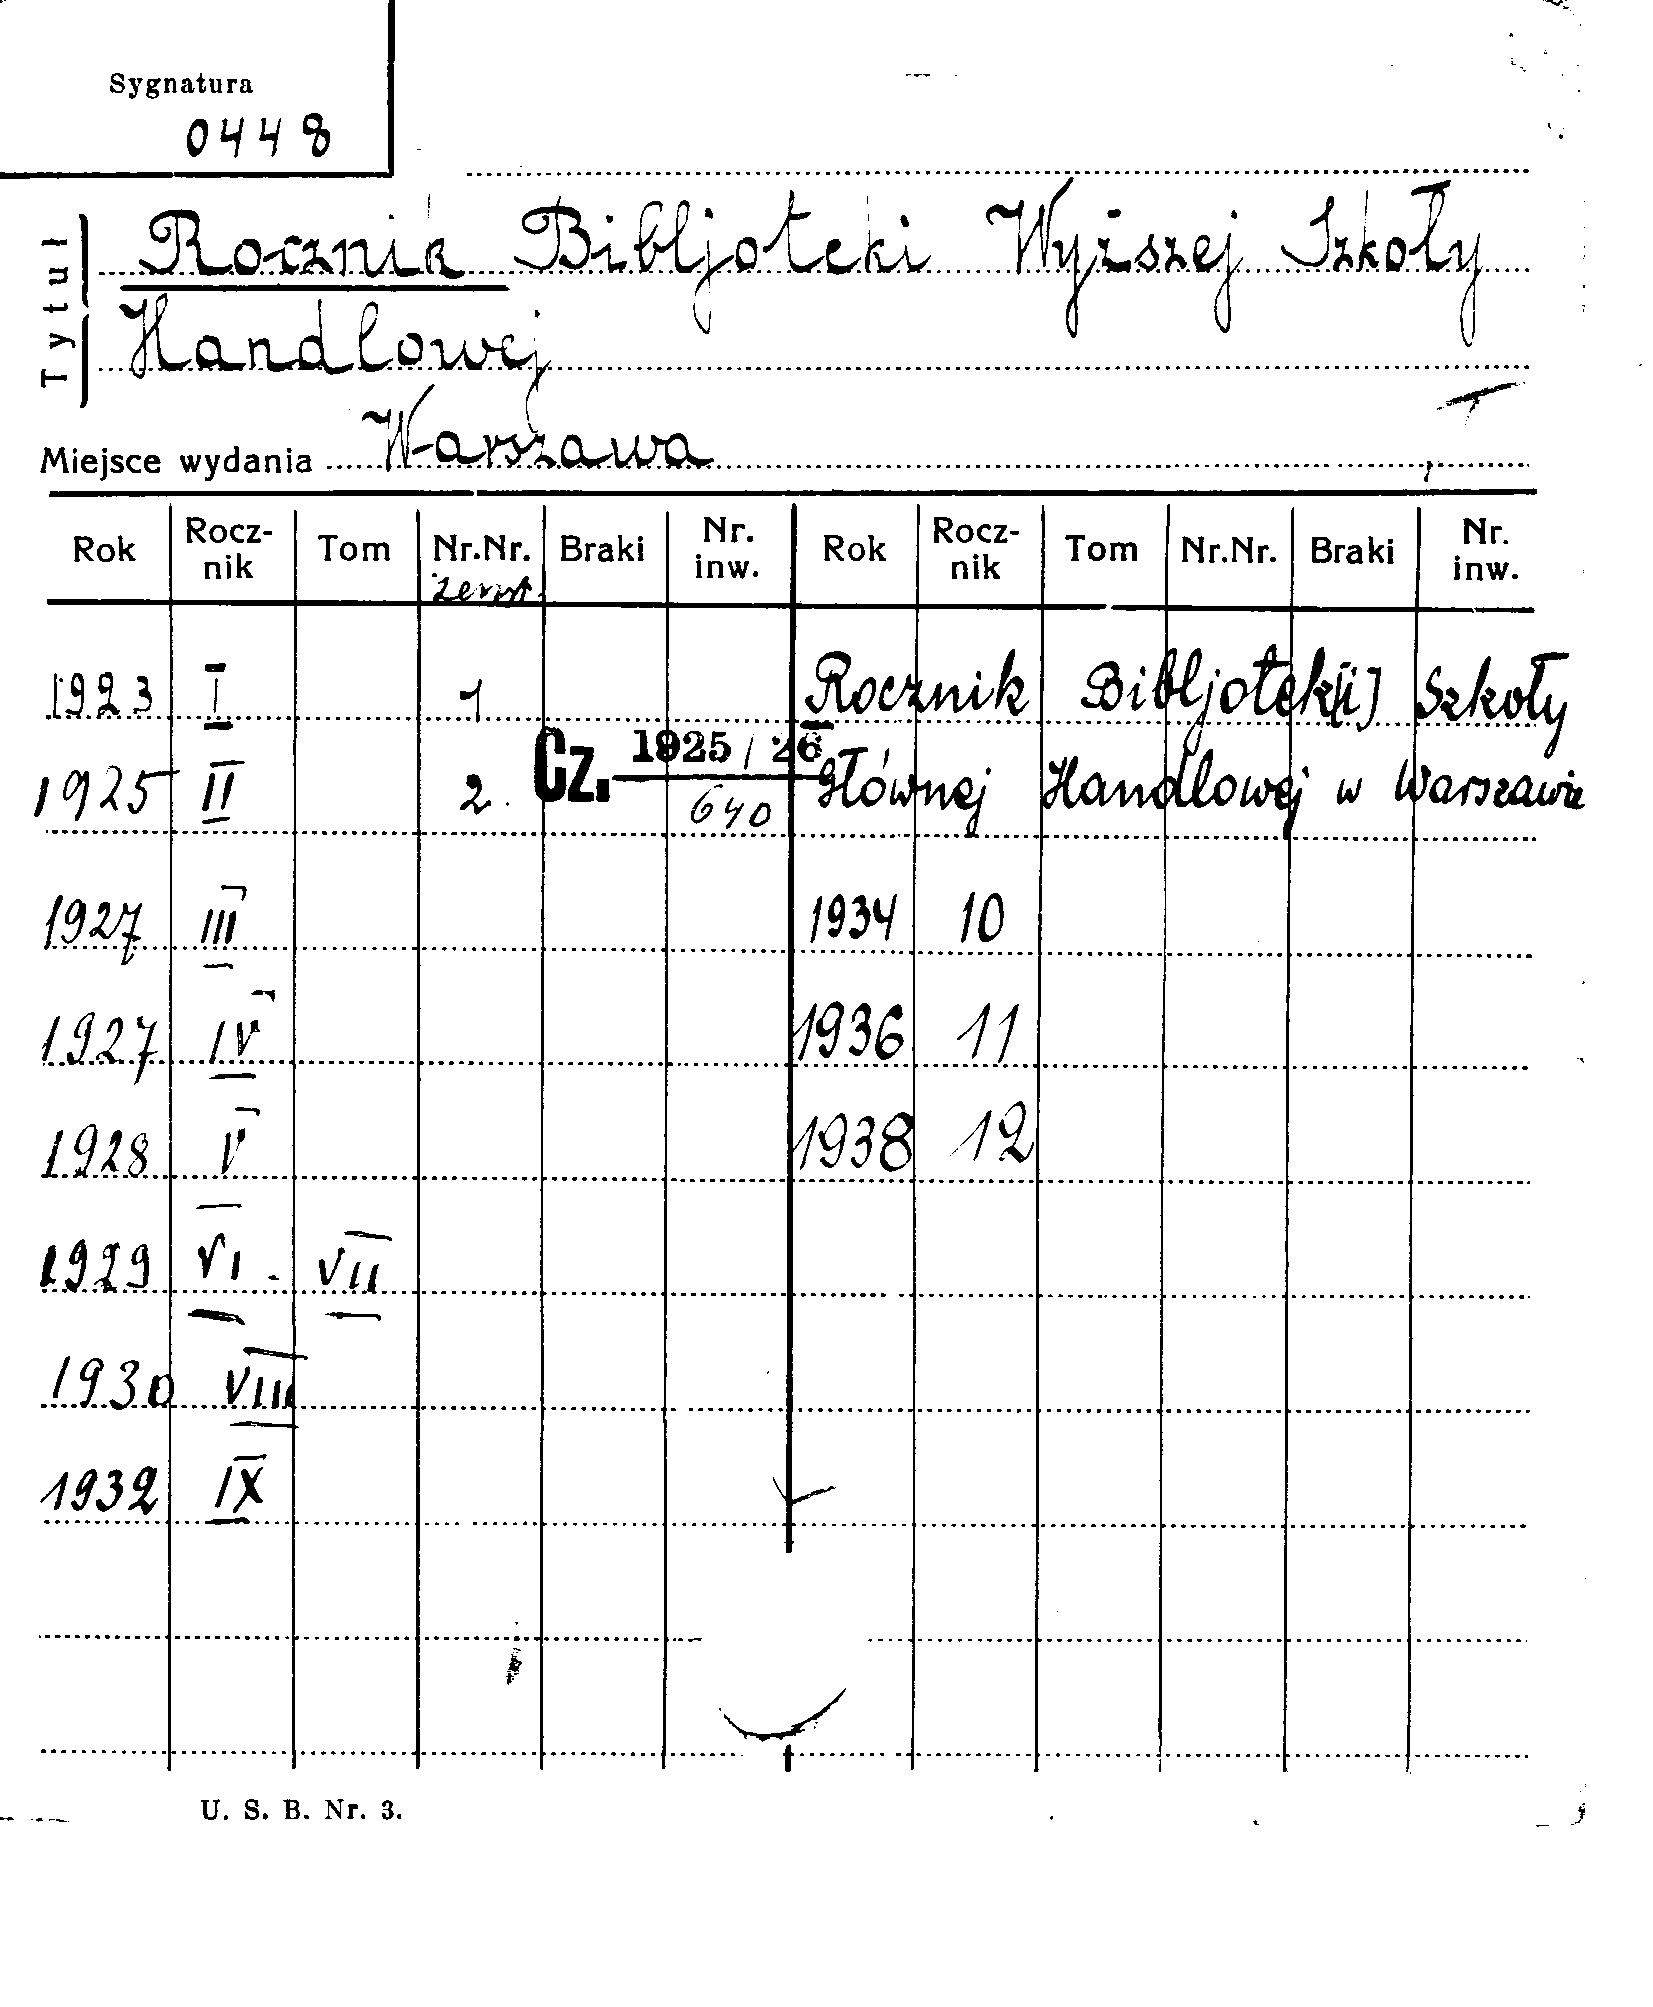 Sygnatura
0448
Tytuł
Rocznik Bibljoteki Wyższej Szkoły
Handlowej
Miejsce wydania Warszawa
Rok Rocz-nik Tom Nr.Nr. Braki Nr. inw. Rok Rocz-nik Tom Nr.Nr. Braki Nr. inw.
zeszyt
1923 I 1 Rocznik Bibljotek[i] Szkoły
Cz. 1925/26
1925 II 2. 640 Głównej Handlowej w Warszawie
1927 III 1934 10
1927 IV 1936 11
1928 V 1938 12
1929 VI - VII
1930 VIII
1932 IX
U. S. B. Nr. 3.